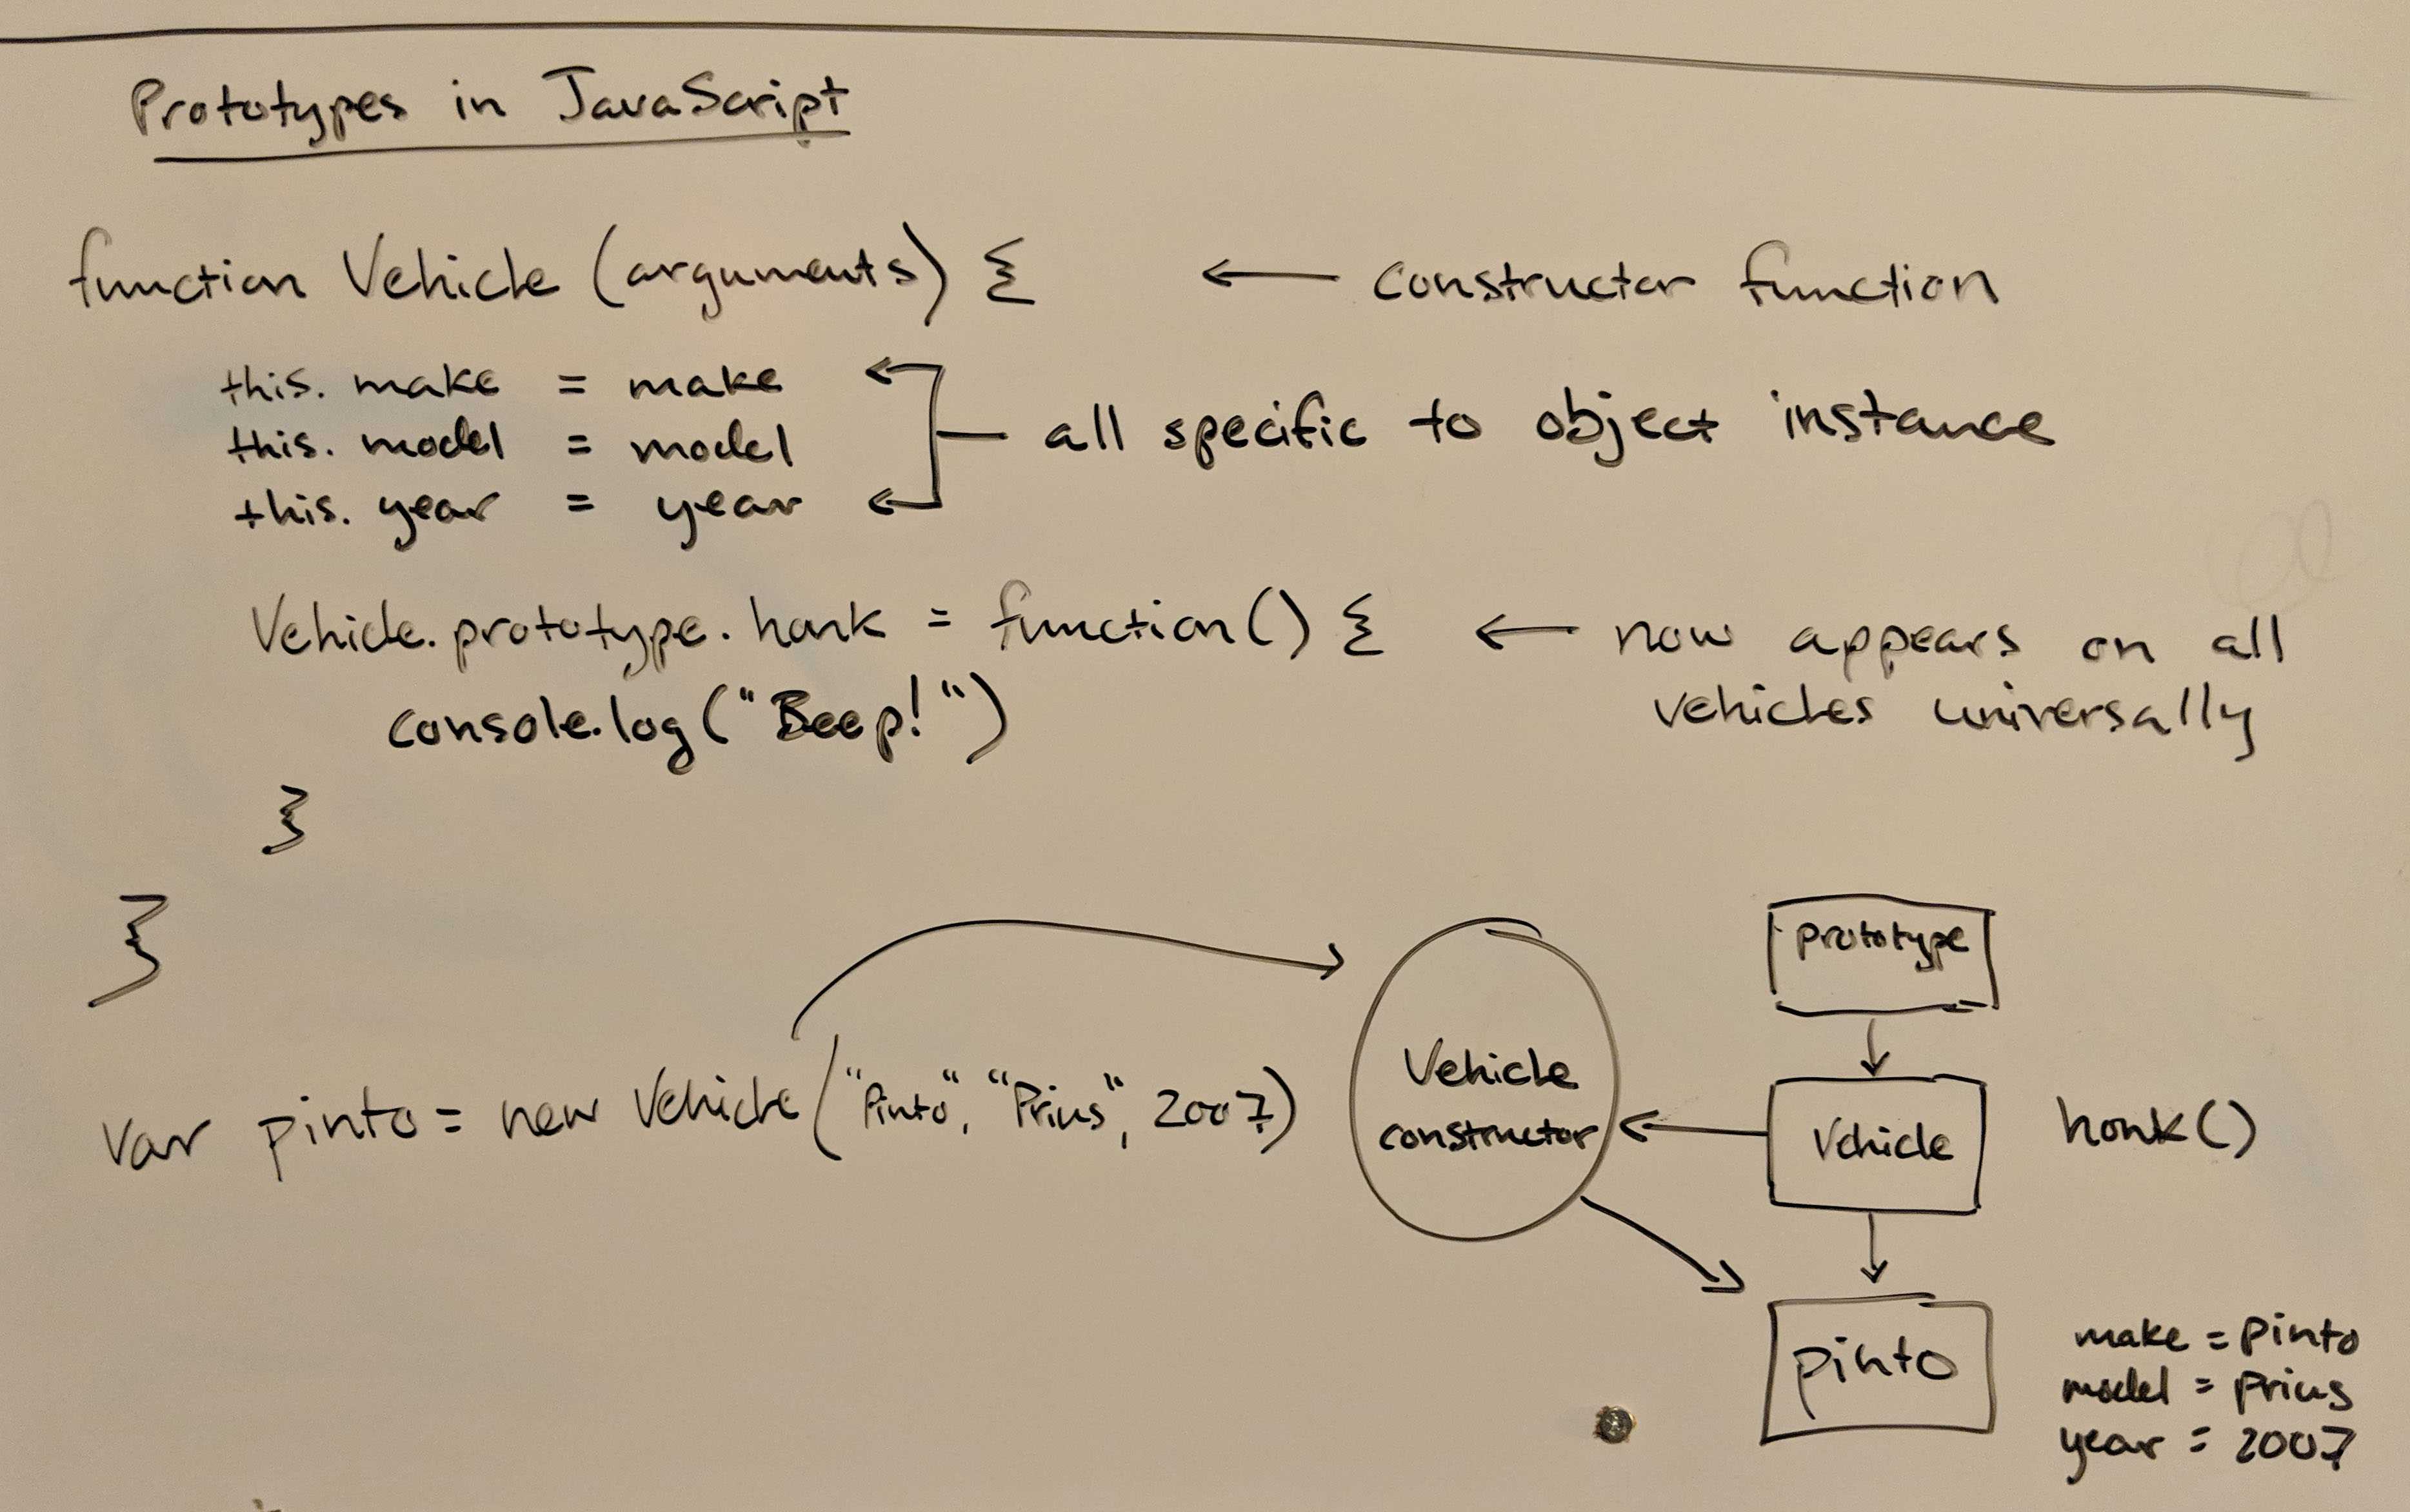 Prototypes in JavaScript
function Vehicle (arguments) { ← constructor function
this. make = make
this. model = model
this. year = year
all specific to object instance
Vehicle.prototype.honk = function() { ← now appears on all
vehicles universally
console.log("Beep!")
}
}
var pinto = new Vehicle("Pinto", "Prius", 2007)
Vehicle
constructor
prototype
Vehicle
honk()
pinto
make = pinto
model = prius
year = 2007